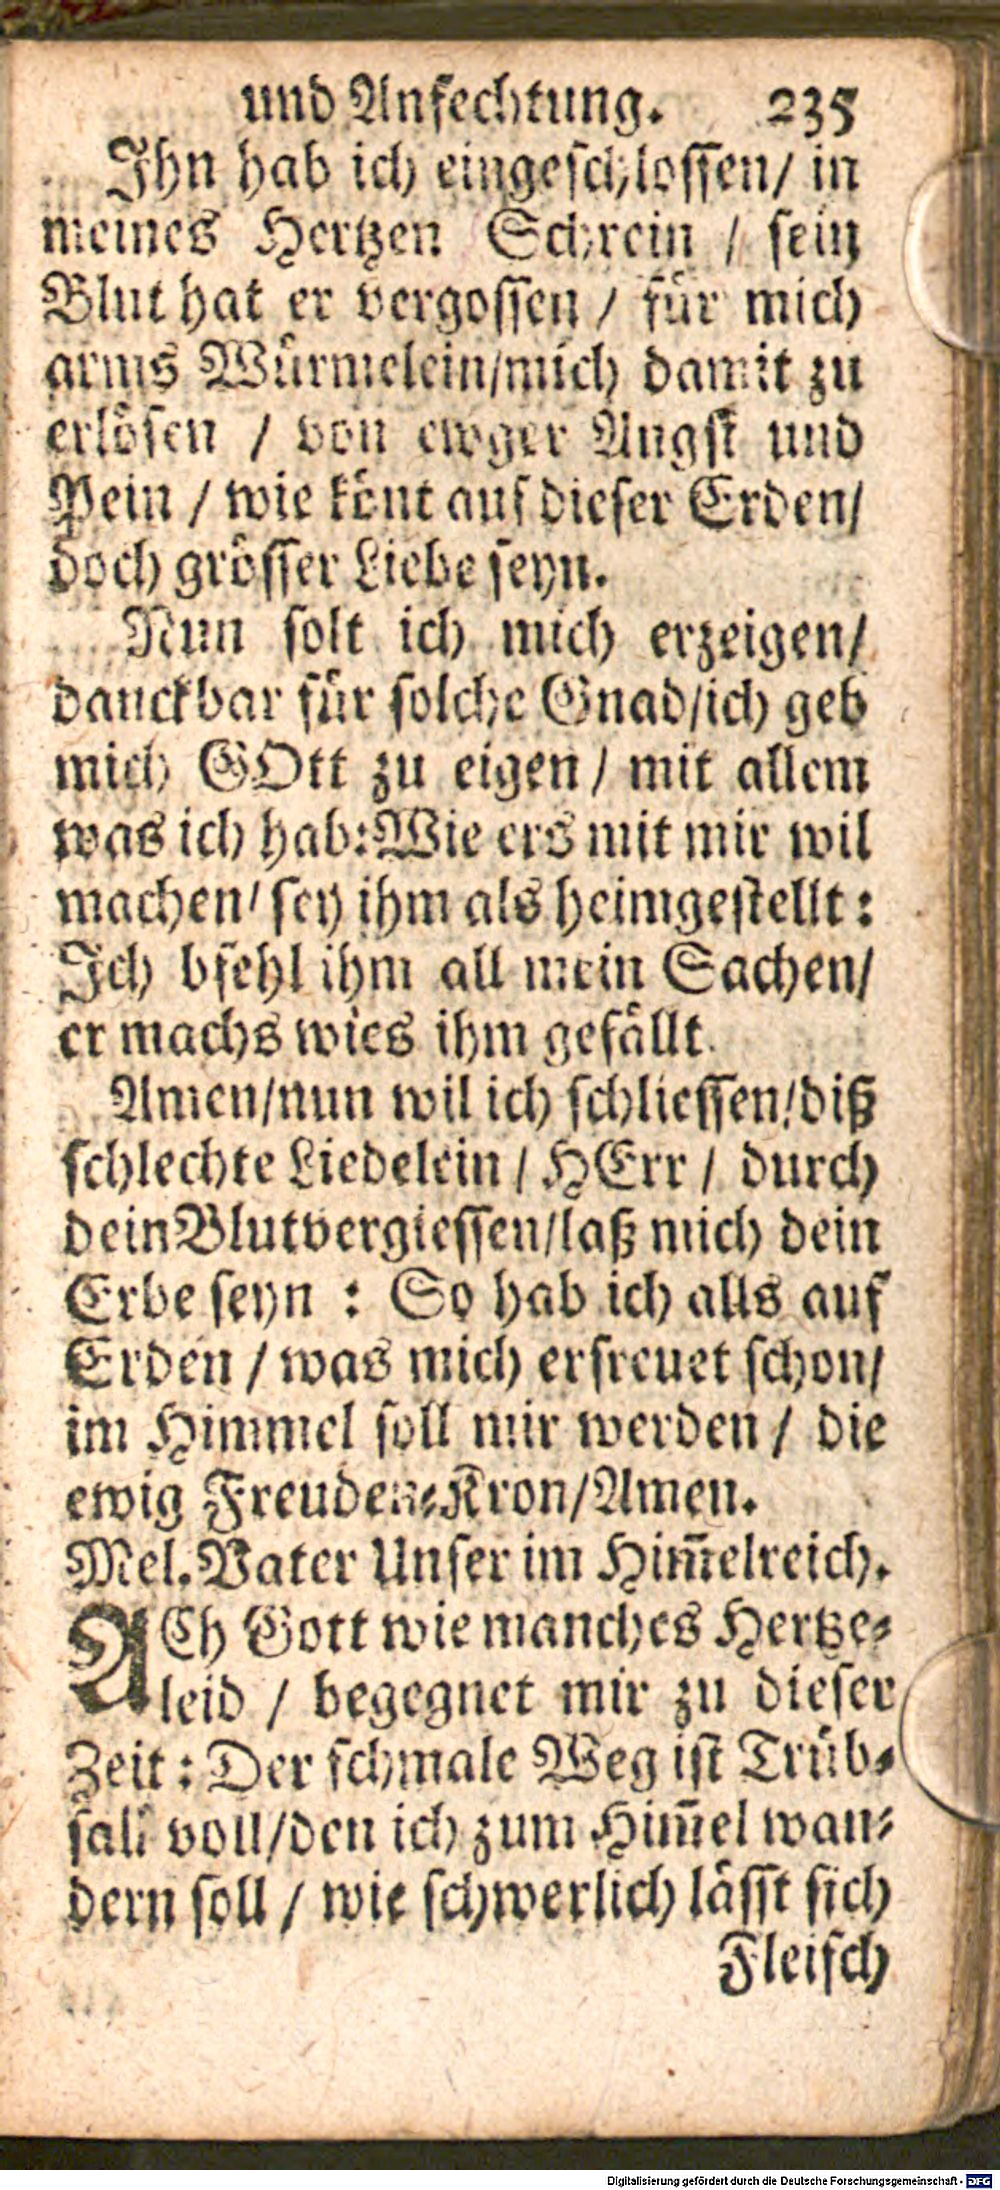 und Anfechtung. 235
Ihn hab ich eingeschlossen/ in
meines Hertzen Schrein / sein
Blut hat er vergossen / für mich
arms Würmelein/mich damit zu
erlösen / von ewger Angst und
Pein / wie könt auf dieser Erden/
doch grösser Liebe seyn.
Nun solt ich mich erzeigen/
danckbar für solche Gnad/ich geb
mich GOtt zu eigen / mit allem
was ich hab: Wie ers mit mir wil
machen/ sey ihm als heimgestellt:
Ich bfehl ihm all mein Sachen/
er machs wies ihm gefällt.
Amen/nun wil ich schliessen/diß
schlechte Liedelein / HErr / durch
dein Blutvergiessen/laß mich dein
Erbe seyn : So hab ich alls auf
Erden / was mich erfreuet schon/
im Himmel soll mir werden / die
ewig Freuden-Kron/Amen.
Mel. Vater Unser im Him̃elreich.
ACh Gott wie manches Hertze-
leid / begegnet mir zu dieser
Zeit: Der schmale Weg ist Trüb-
sall voll/den ich zum Him̃el wan-
dern soll / wie schwerlich lässt sich
Fleisch
Digitalisierung gefördert durch die Deutsche Forschungsgemeinschaft - DFG